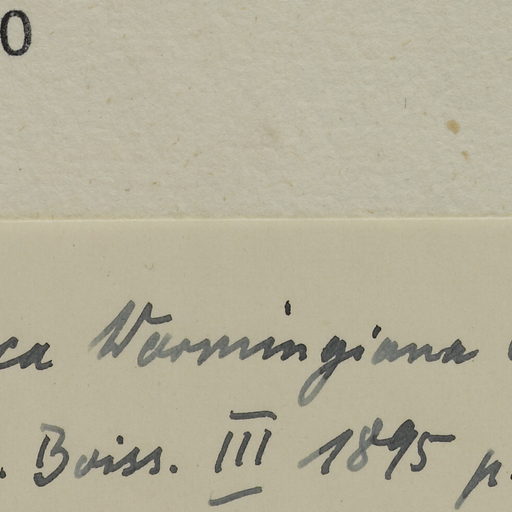 0
ca Warmingiana
. Boiss. III 1895 p.